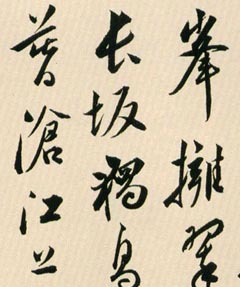 峯擁翠
長坂獨鳥
滄江上